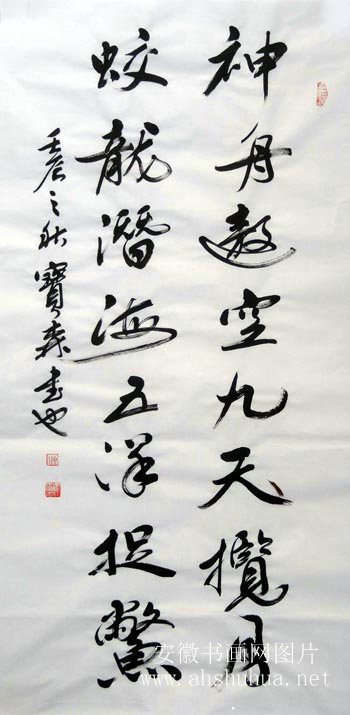 神舟遨空九天攬月
蛟龍潛海五洋捉鱉
壬辰之秋寶森書也
安徽书画网图片
www.ahshuhua.net